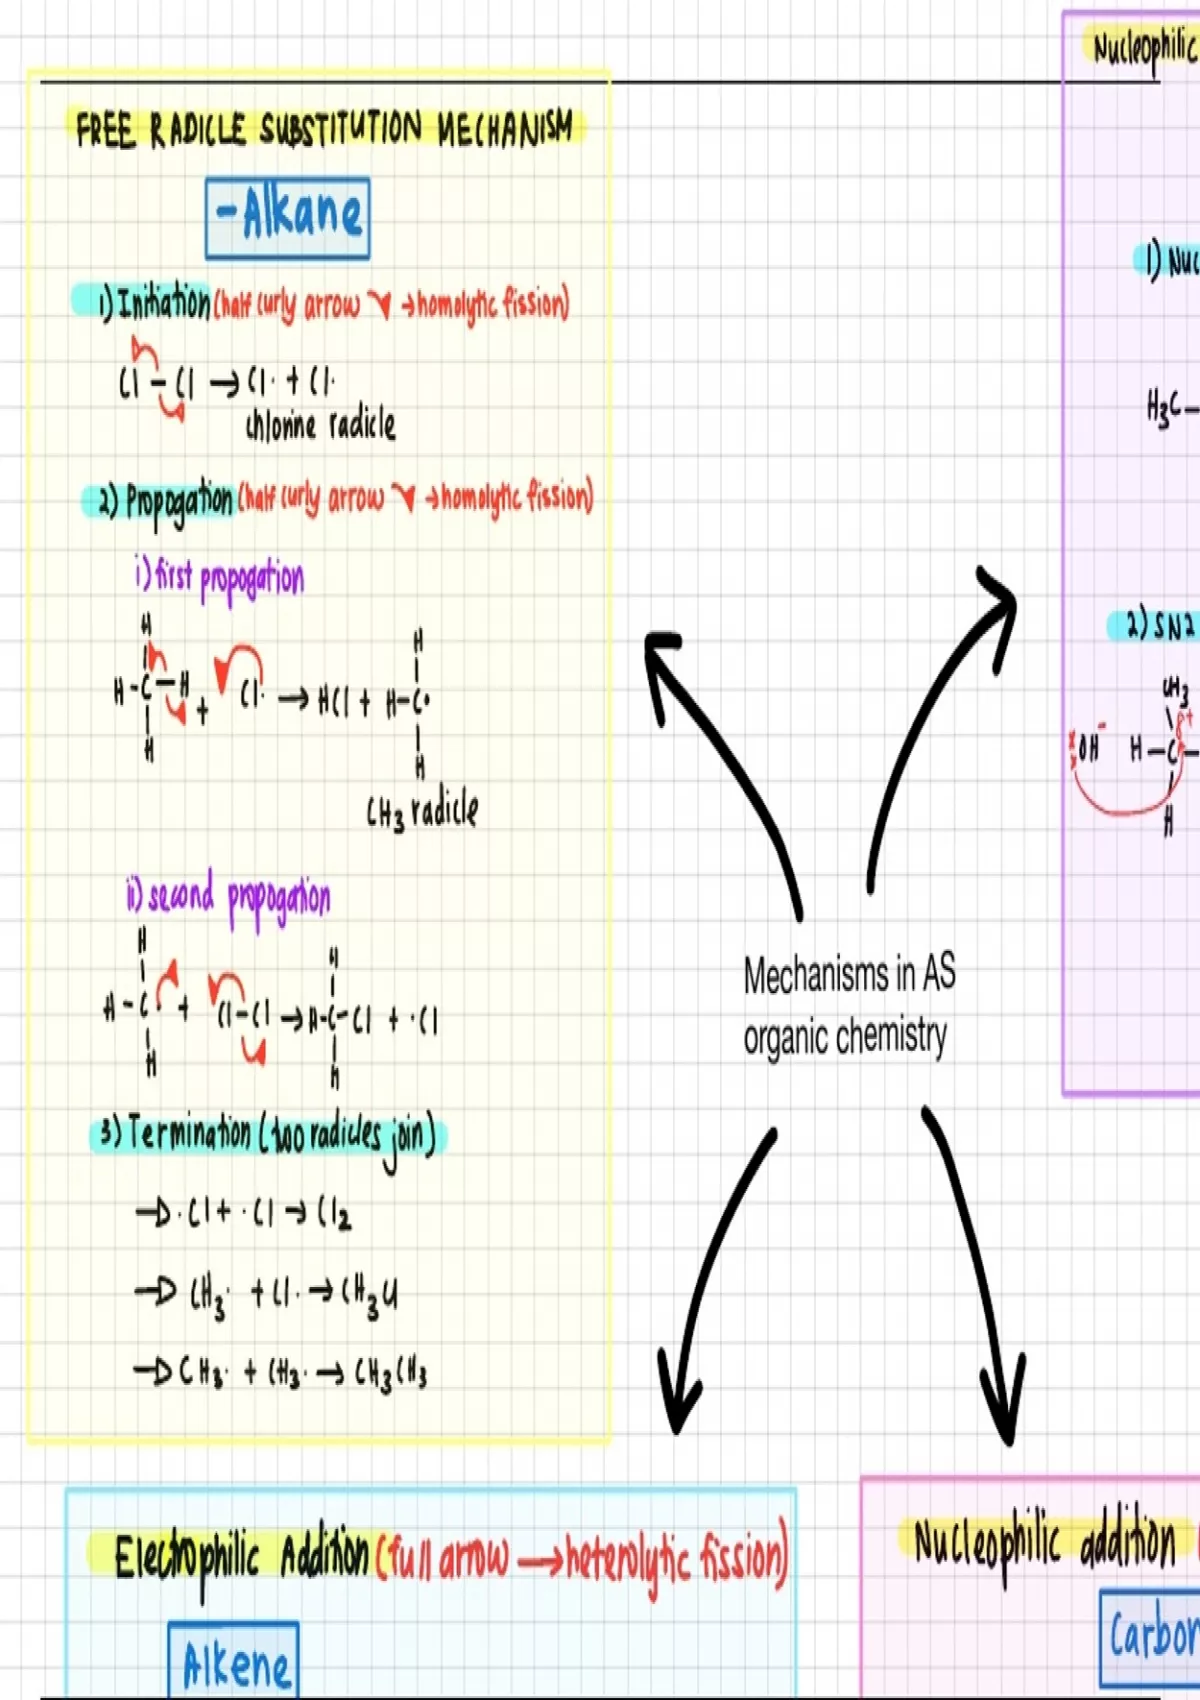 FREE RADICLE SUBSTITUTION MECHANISM
-Alkane
1) Initiation (half curly arrow → homolytic fission)
Cl - Cl → Cl· + Cl·
chlorine radicle
2) Propogation (half curly arrow → homolytic fission)
i) first propogation
H
H
H - C - H + Cl· → HCl + H - C·
H
H
CH3 radicle
ii) second propogation
H
H
H - C · + Cl - Cl → H - C - Cl + ·Cl
H
H
3) Termination (two radicles join)
→ ·Cl + ·Cl → Cl2
→ CH3· + Cl· → CH3Cl
→ CH3· + CH3· → CH3CH3
Mechanisms in AS
organic chemistry
Nucleophilic
1) Nuc
H3C -
2) SN2
CH3
δ+
OH- H - C -
H
Electrophilic Addition (full arrow → heterolytic fission)
Alkene
Nucleophilic addition (
Carbon